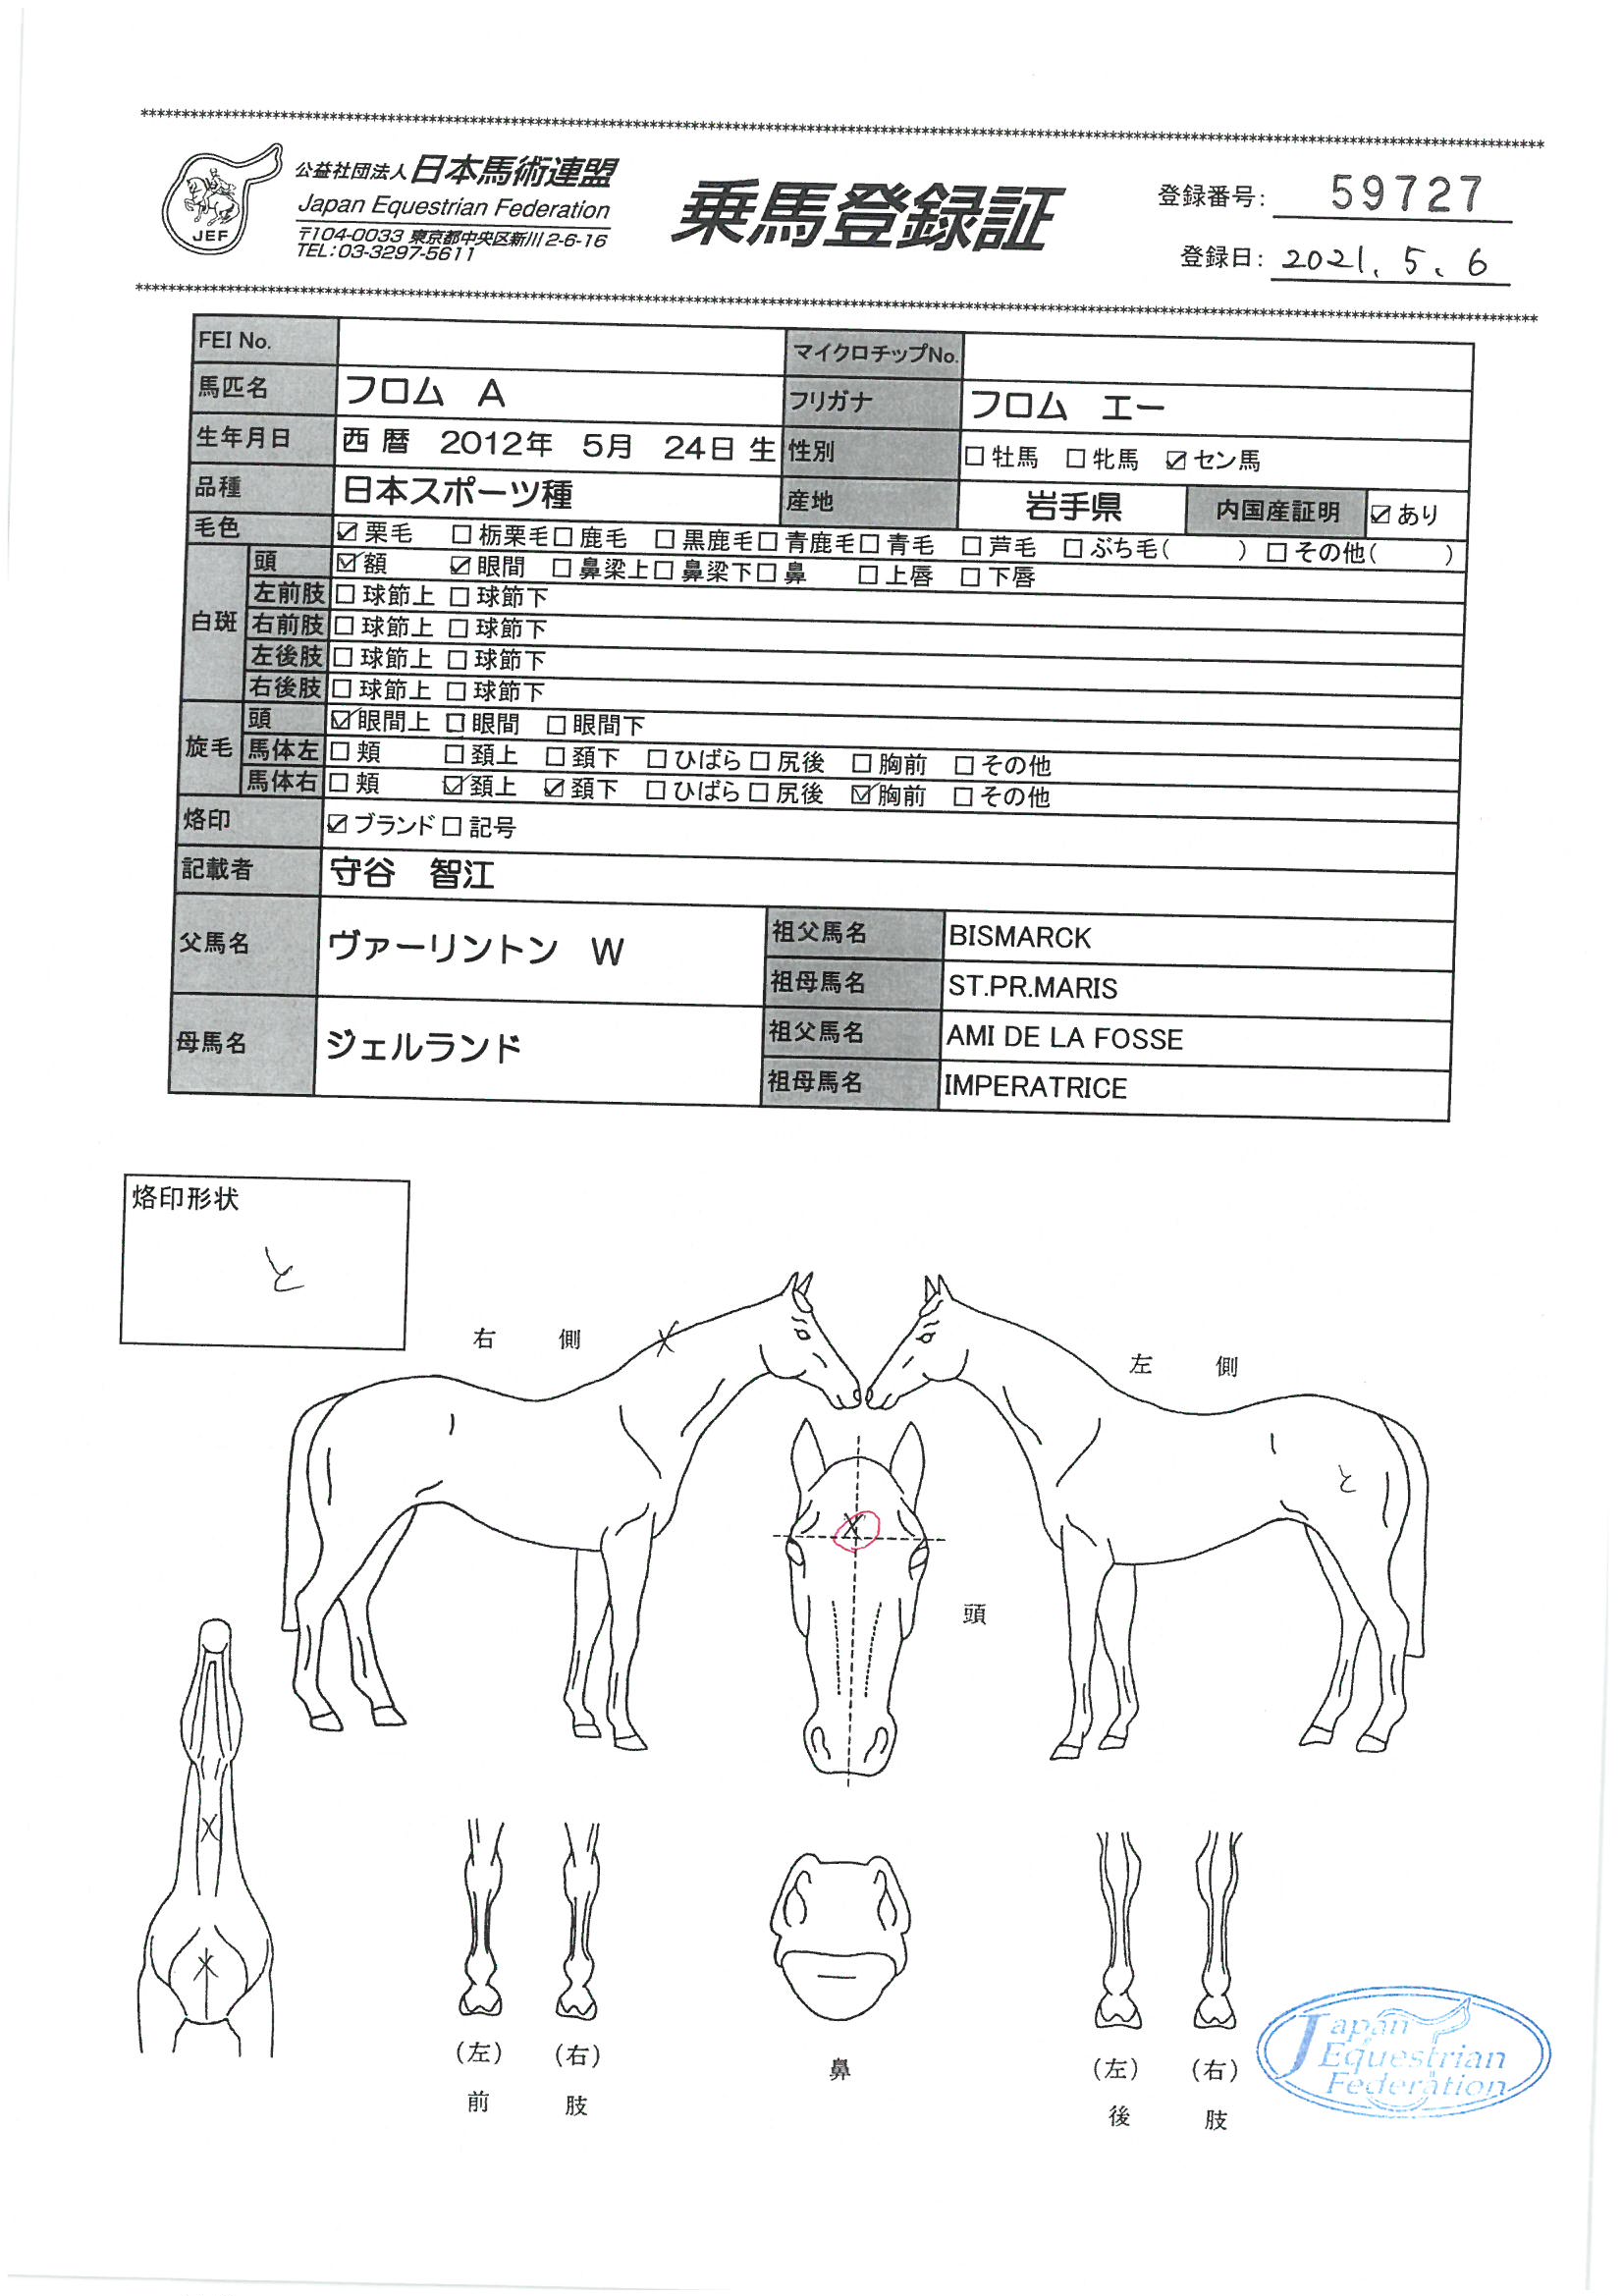 ****************************************************************
公益社団法人 日本馬術連盟
Japan Equestrian Federation
〒104-0033 東京都中央区新川2-6-16
TEL:03-3297-5611
JEF
乗馬登録証
登録番号: 59727
登録日: 2021. 5. 6
****************************************************************
FEI No. マイクロチップNo.
馬匹名 フロム A フリガナ フロム エー
生年月日 西暦 2012年 5月 24日 生 性別 □牡馬 □牝馬 ☑セン馬
品種 日本スポーツ種 産地 岩手県 内国産証明 ☑あり
毛色 ☑栗毛 □栃栗毛 □鹿毛 □黒鹿毛 □青鹿毛 □青毛 □芦毛 □ぶち毛( ) □その他( )
白斑 頭 ☑額 ☑眼間 □鼻梁上 □鼻梁下 □鼻 □上唇 □下唇
左前肢 □球節上 □球節下
右前肢 □球節上 □球節下
左後肢 □球節上 □球節下
右後肢 □球節上 □球節下
旋毛 頭 ☑眼間上 □眼間 □眼間下
馬体左 □頬 □頚上 □頚下 □ひばら □尻後 □胸前 □その他
馬体右 □頬 ☑頚上 ☑頚下 □ひばら □尻後 ☑胸前 □その他
烙印 ☑ブランド □記号
記載者 守谷 智江
父馬名 ヴァーリントン W 祖父馬名 BISMARCK
祖母馬名 ST.PR.MARIS
母馬名 ジェルランド 祖父馬名 AMI DE LA FOSSE
祖母馬名 IMPERATRICE
烙印形状
と
右 側
左 側
と
頭
(左) (右)
前 肢
鼻
(左) (右)
後 肢
Japan
Equestrian
Federation